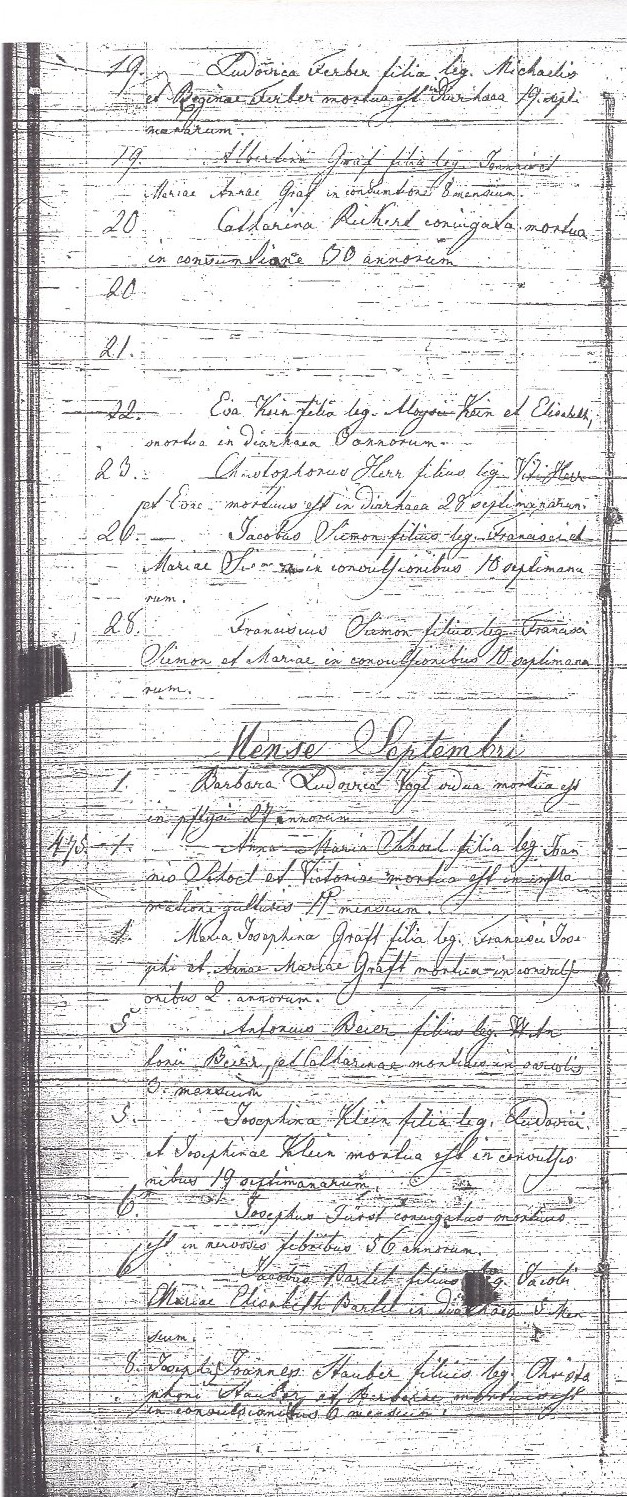 19. Ludovica Ferber filia leg. Michaelis
et Reginae Ferber mortua est diarrhaea 19 septi
manarum.
19. Albertina Graf filia leg. Joannis et
Mariae Annae Graf in consumtione 8 mensium.
20 Catharina Rickert conjugata mortua
in consumtione 50 annorum
20
21.
22. Eva Kein filia leg. Aloysii Kein et Elisabeth,
mortua in diarhaea 3 annorum.
23. Christophorus Herr filius leg. Viti Herr
et Evae mortuus est in diarhaea 28 septimanarum.
26 Jacobus Siemon filius leg. Francisci et
Mariae in convulsionibus 10 septimana
rum.
28. Franciscus Siemon filius leg. Francisci
Siemon et Mariae in convulsionibus 10 septimana
rum.
Mense Septembri
1. Barbara Ludovica Vogt vidua mortua est
in pftysi 27 annorum
475 1. Anna Maria Schoel filia leg. Joan
nis et Victoriae mortua est in infla
matione gutturis mensium.
4. Maria Josephina Graft filia leg. Francisci Jose
phi et Annae Mariae Graft mortua in convulsi
onibus 2 annorum.
5 Antonius Beier filius leg. An
tonii Beier, et Catharinae mortuus in variolis
3. mensium
5. Josephina Klein filia leg. Ludovici
et Josephinae Klein mortua est in convulsio
nibus 19 septimanarum.
6. Josephus Fürst conjugatus mortuus
est in nervosis febribus 56 annorum.
6 Jacobus Bartel filius leg. Jacobi
Mariae Elisabeth Bartel in diarhaea 5 Men
sium.
8. Joseph Joannes Stauber filius leg. Christo
phori Stauber et Barbarae mortuus est
in convulsionibus 6 mensium.